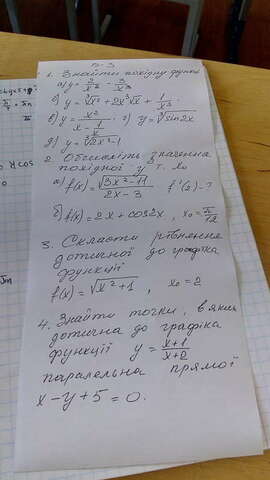 п-3
1. Знайти похідну функції
а) y = 2/x² - 3/x³
б) y = ∛x² + 2x³√x + 1/x³
в) y = x²/(x - 1/x) г) y = √sin2x
д) y = √2x²-1
2. Обчисліть значення
похідної у т. x₀
а) f(x) = √3x²-11/(2x-3) f'(2)-?
б) f(x) = 2x + cos2x, x₀ = π/12
3. Скласти рівняння
дотичної до графіка
функції
f(x) = √x²+1, x₀ = 2
4. Знайти точки, в яких
дотична до графіка
функції y = x+1/x+2
паралельна прямої
x - y + 5 = 0.